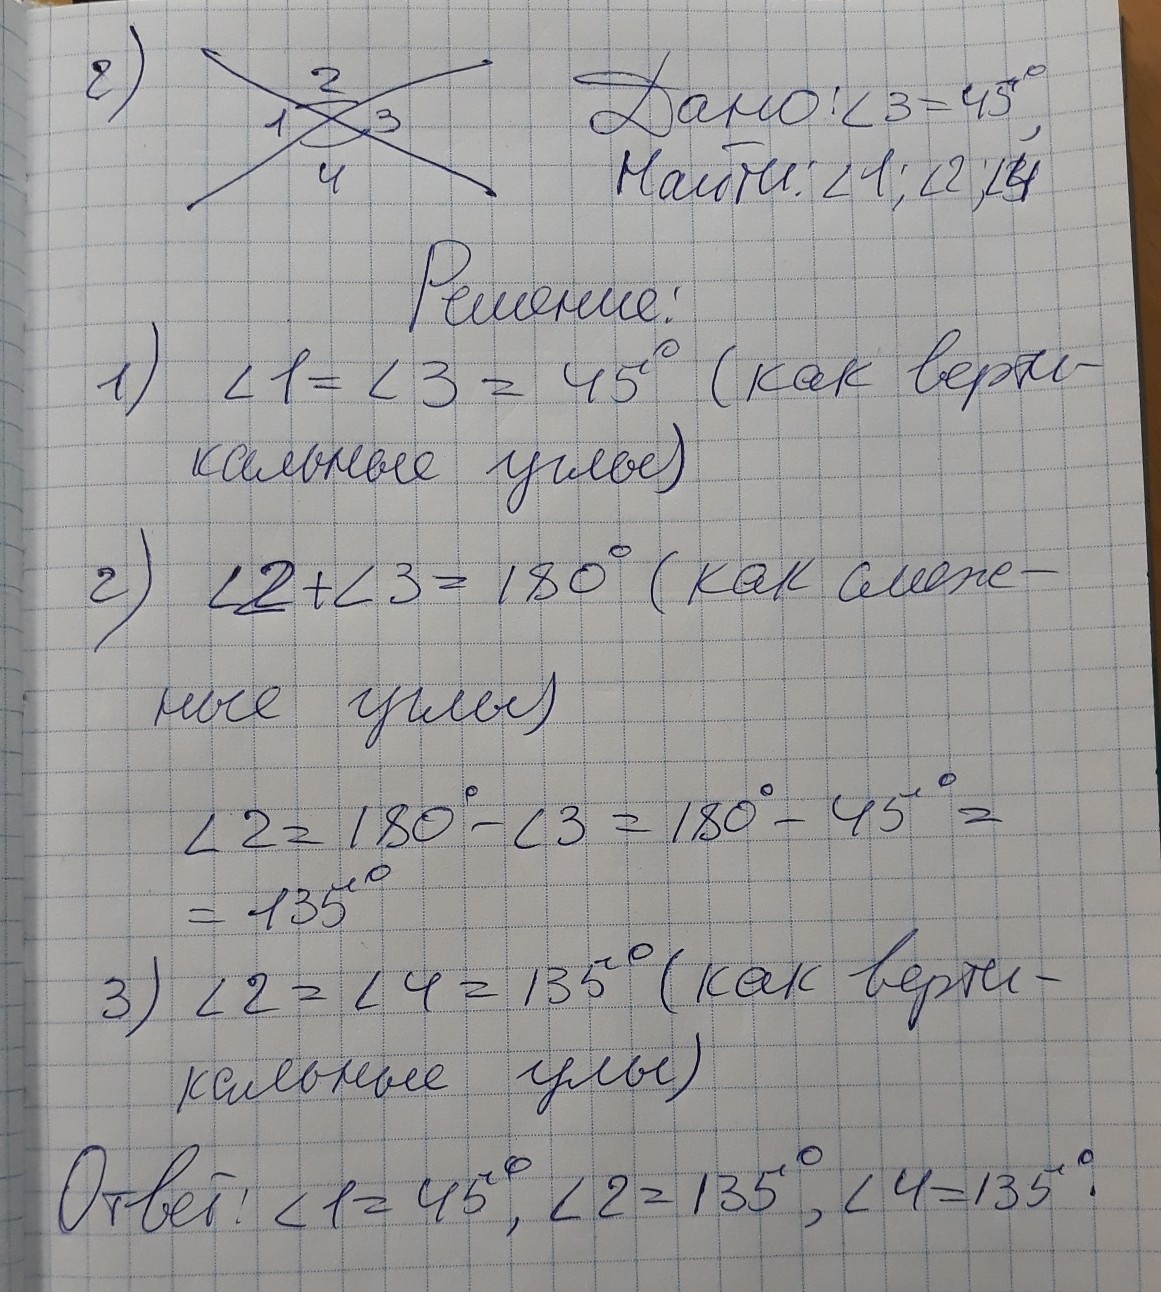 2)
2
1 3
4
Дано: ∠3 = 45°,
Найти: ∠1; ∠2; ∠4
Решение:
1) ∠1 = ∠3 = 45° (как верти-
кальные углы)
2) ∠2 + ∠3 = 180° (как смеж-
ные углы)
∠2 = 180° - ∠3 = 180° - 45° =
= 135°
3) ∠2 = ∠4 = 135° (как верти-
кальные улы)
Ответ: ∠1 = 45°, ∠2 = 135°, ∠4 = 135°.